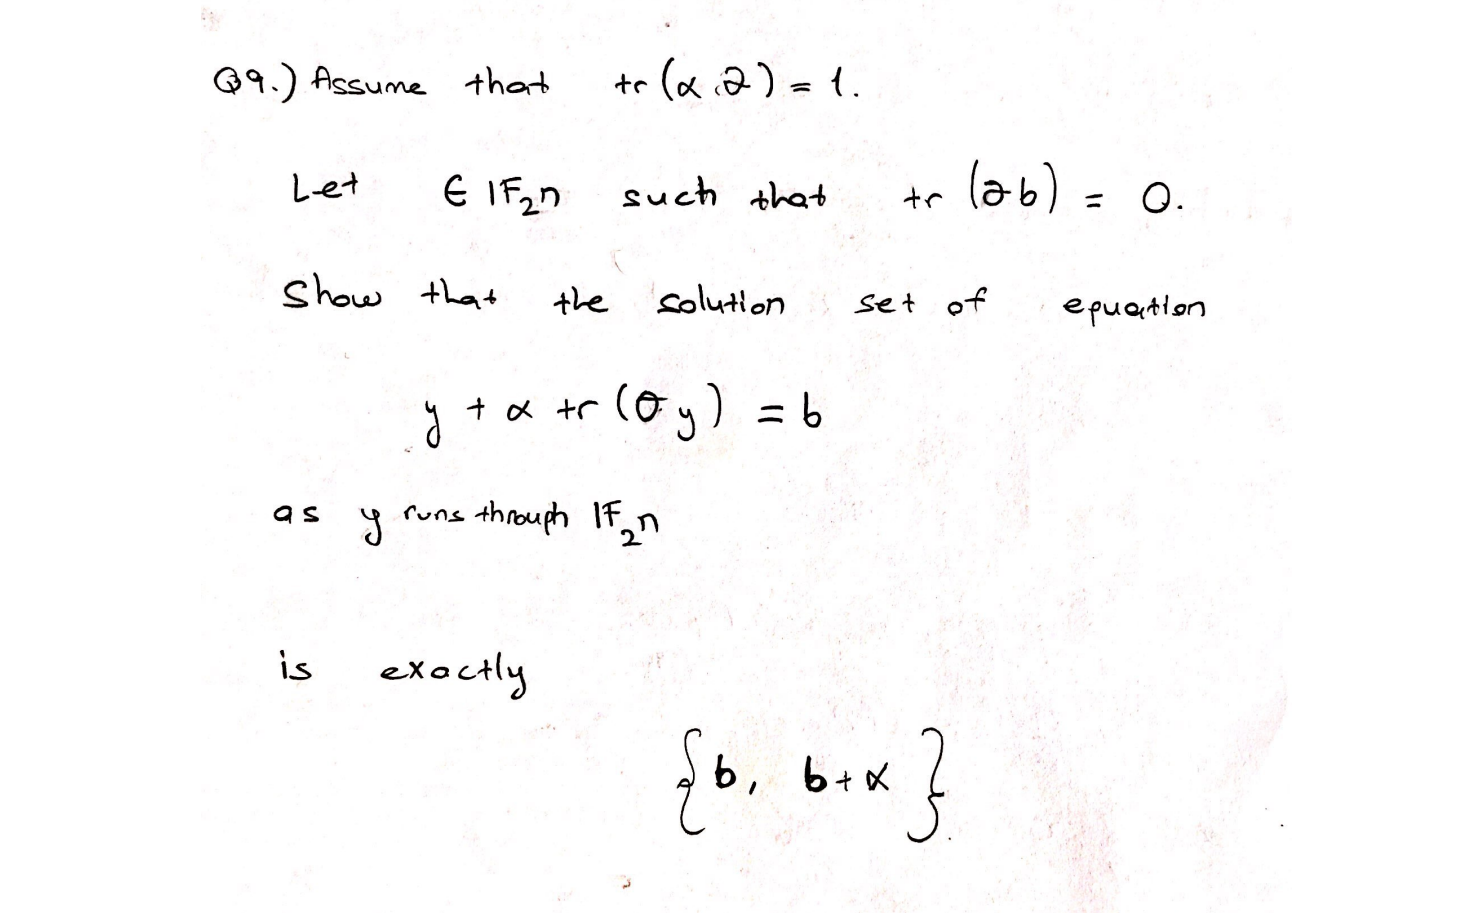 Q9.) Assume that tr(α.a) = 1.
Let ∈ IF₂n such that tr(ab) = 0.
Show that the solution set of equation
y + α tr(σy) = b
as y runs through IF₂n
is exactly
{b, b+α}.